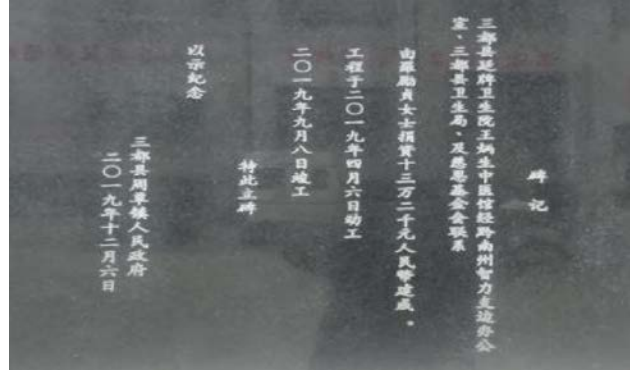 碑记
三都县廷牌卫生院王炳生中医馆经黔南州智力支边办公
室、三都县卫生局、及慈恩基金会联系
由罗励贞女士捐资十三万二千元人民币建成。
工程于二〇一九年四月六日动工
二〇一九年九月八日竣工
特此立碑
以示纪念
三都县周覃镇人民政府
二〇一九年十二月六日